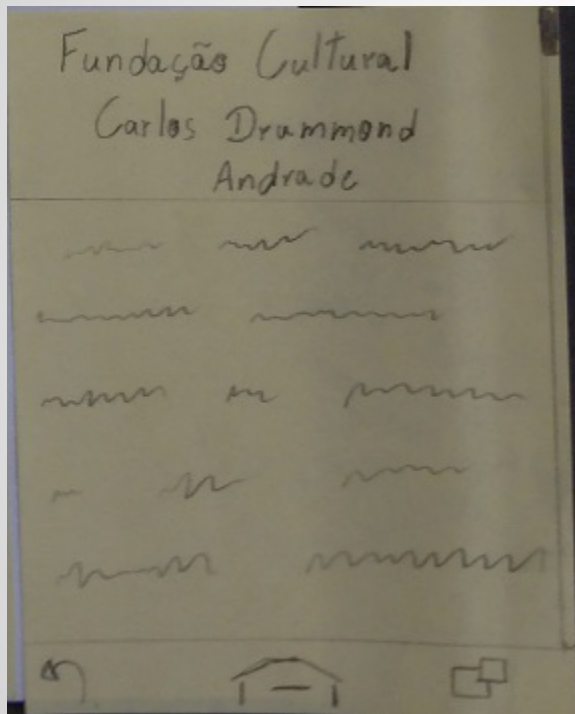 Fundação Cultural
Carlos Drummond
Andrade